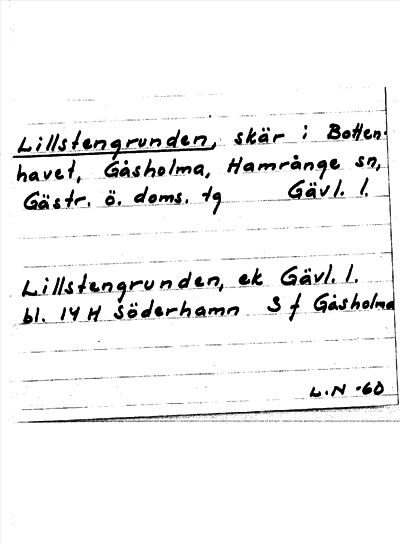 Lillstengrunden, skär i Botten-
havet, Gåsholma, Hamrånge sn,
Gästr. ö. doms. tg Gävl. l.
Lillstengrunden, ek Gävl. l.
bl. 14 H Söderhamn S f Gåsholma
L.N -60